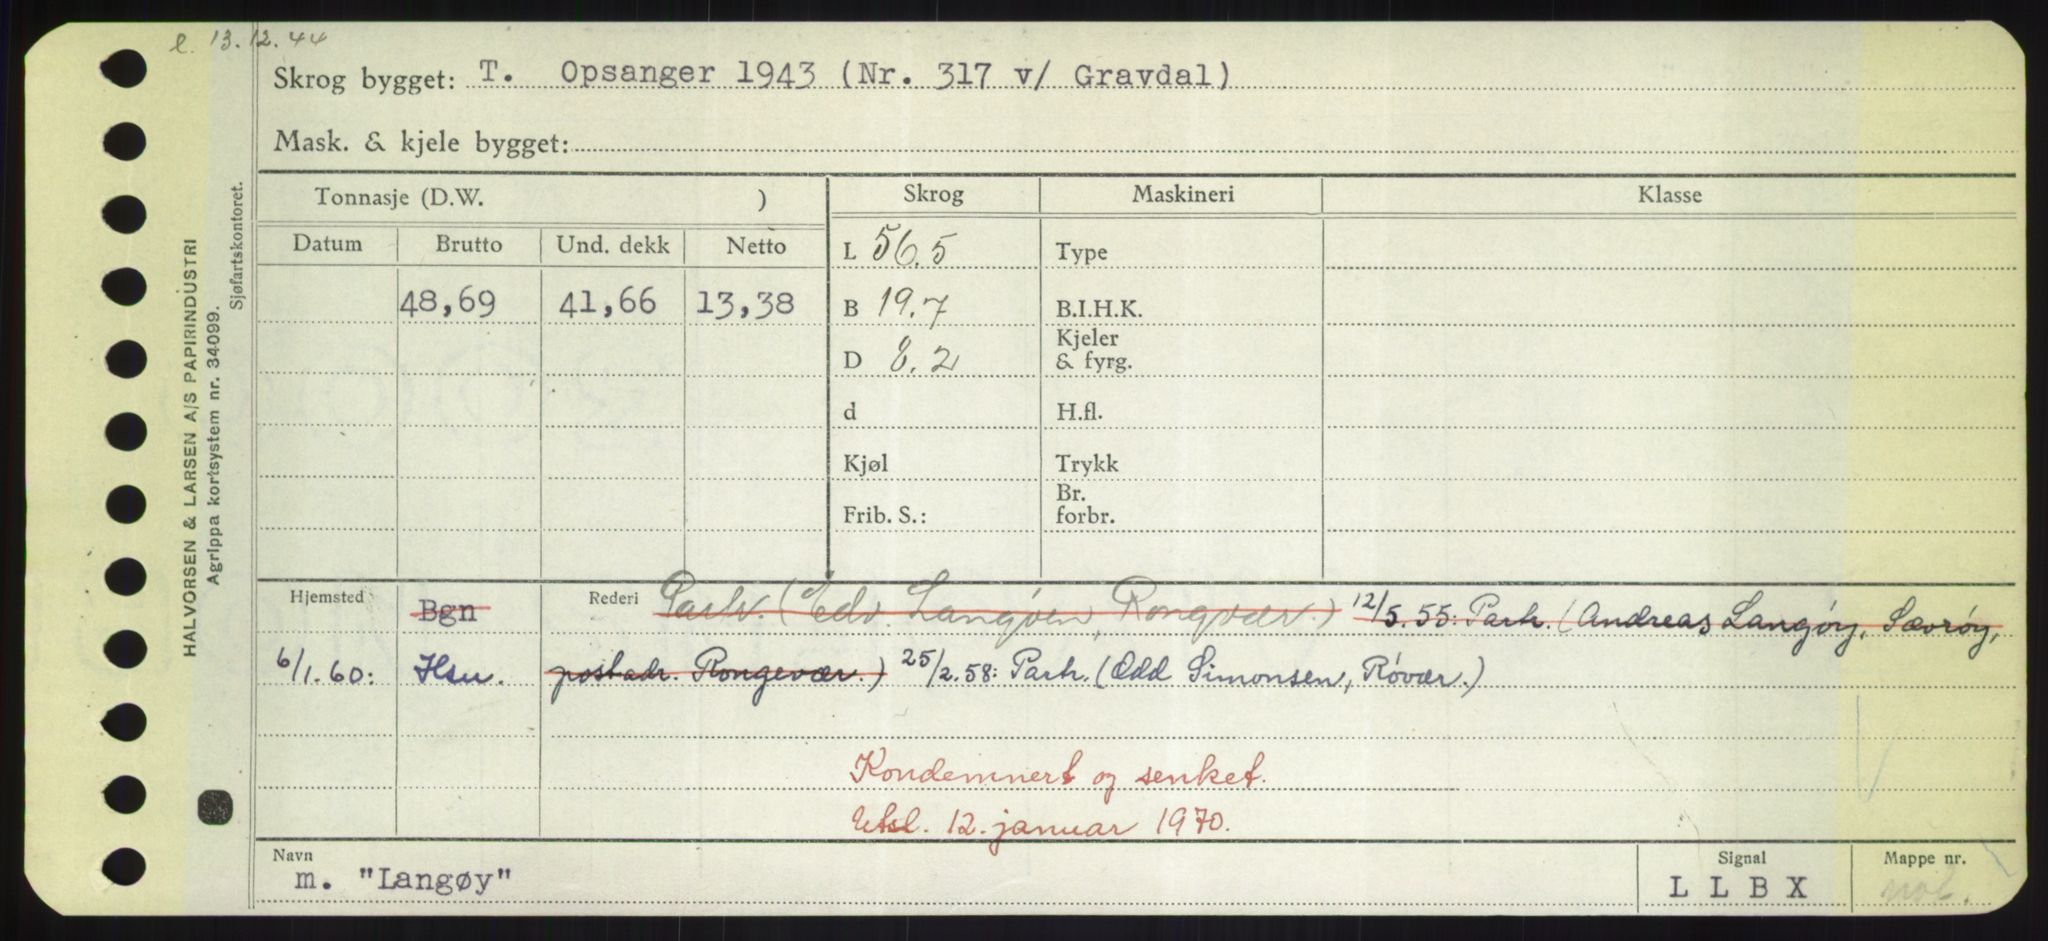 e. 13.12.44
Skrog bygget: T. Opsanger 1943 (Nr. 317 v/ Gravdal)
Mask. & kjele bygget:
HALVORSEN & LARSEN A/S PAPIRINDUSTRI
Agrippa kortsystem nr. 34099.
Sjøfartskontoret.
Tonnasje (D.W. ) Skrog Maskineri Klasse
Datum Brutto Und. dekk Netto
L 56.5 Type
48,69 41,66 13,38 B 19.7 B.I.H.K.
D 8.2 Kjeler & fyrg.
d H.fl.
Kjøl Trykk
Frib. S.: Br. forbr.
Hjemsted Bgn Rederi Partr. (Edv. Langøen, Rongvær.) 12/5.55: Partr. (Andreas Langøy, Sævrøy,
6/1.60: Hsu. postadr. Rongevær.) 25/2.58: Partr. (Odd Simonsen, Røvær.)
Kondemnert og senket.
Utsl. 12. januar 1970.
Navn Signal Mappe nr.
m. "Langøy" L L B X